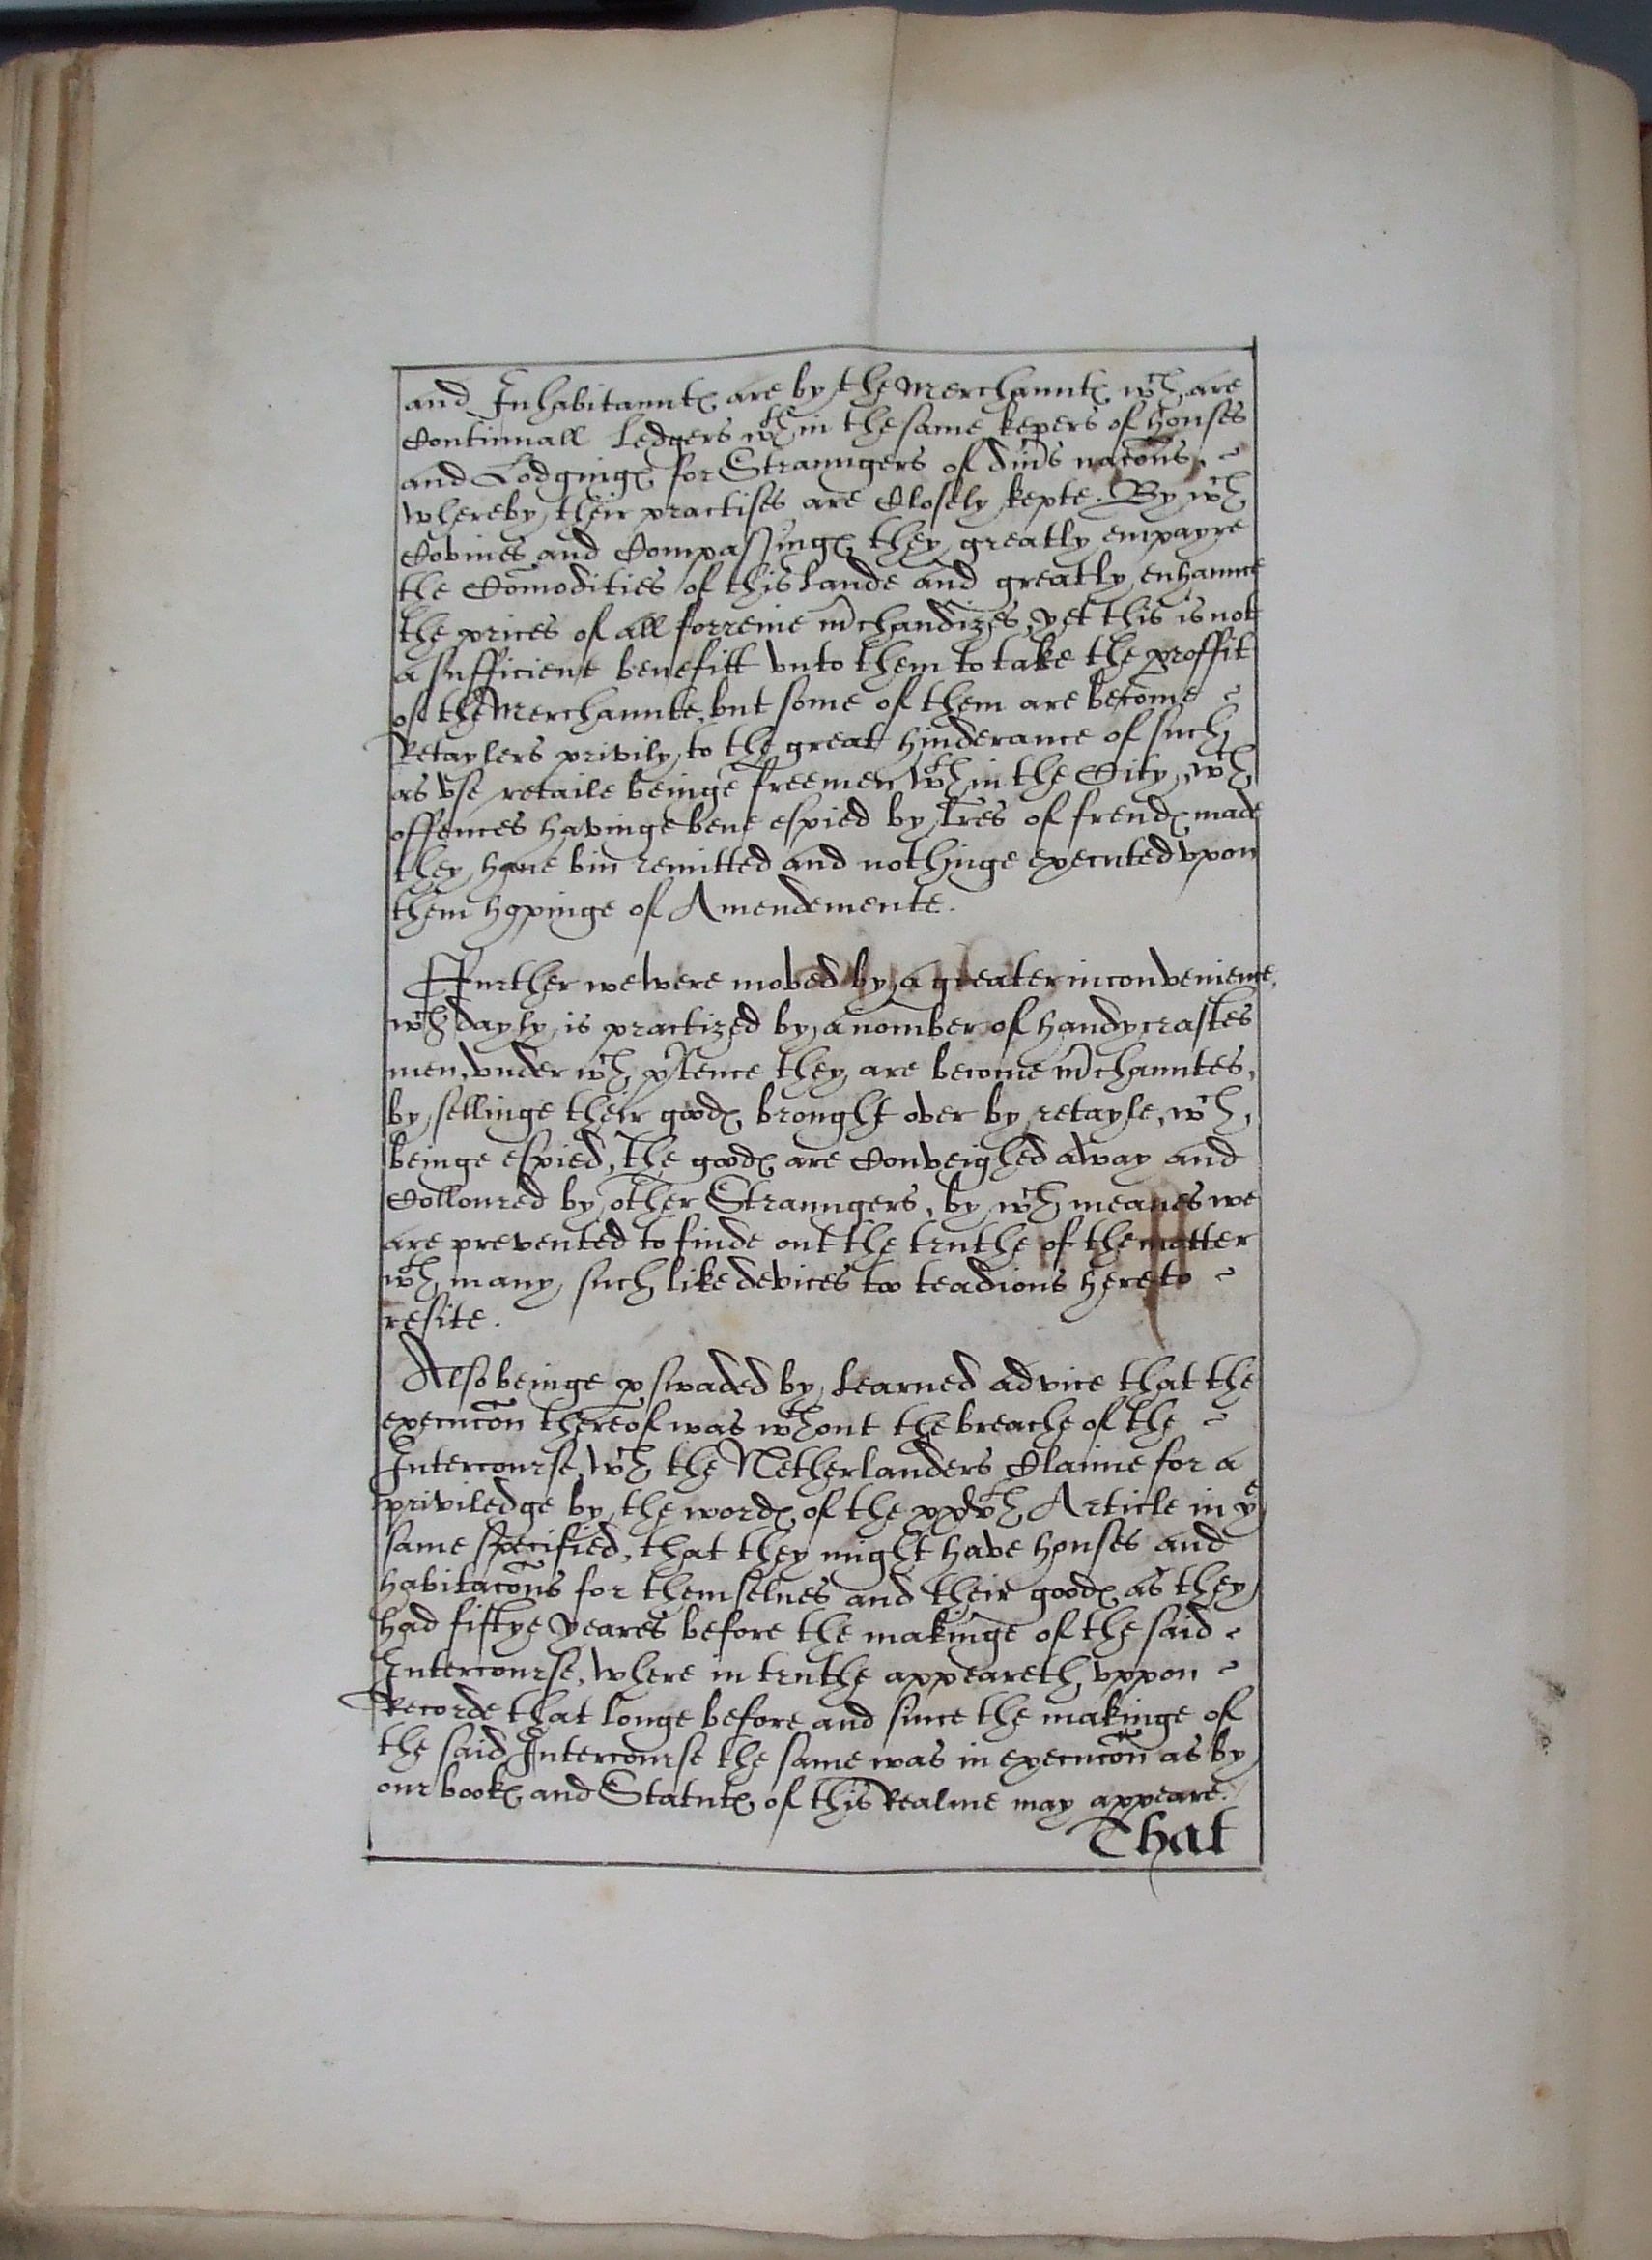 and Inhabitanntꝭ are by the Merchanntꝭ wch are
Continuall Ledgers wth in the same kepers of houses
and Lodgingꝭ for Straungers of divˀs nacõns,
whereby their practises are Closely kepte. By wch
Covines and Compassingꝭ they greatly empayre
the Com̃odities of this Lande and greatly enhaunce
the prices of all forreine mˀchandizes, yet this is not
a sufficient benefitt vnto them to take the proffit
of the Merchannte, but some of them are become
Retaylers privily, to the great hinderance of such
as vse retaile beinge freemen wth in the City, wch
offences havinge bene espied by lr̃es of frendꝭ made
they haue bin remitted and nothinge executed vpon
them hopinge of Amendemente.
Further we were moved by a greater inconvenience,
wch dayly is practized by a nomber of handycraftes
men, vnder wch pˀtence they are become mˀchanntes,
by sellinge their goodꝭ brought over by retayle, wch
beinge espied, the goodꝭ are Conveighed away and
Colloured by other Straungers, by wch meanes we
are prevented to finde out the truthe of the matter
wth many such like devices too teadious here to
resite.
Also beinge ꝑswaded by Learned advice that the
execucõn thereof was wthout the breache of the
Intercourse, wch the Netherlanders Claime for a
priviledge by the wordꝭ of the Article in ye
same specified, that they might have houses and
habitacõns for themselues and their goodꝭ as they
had fiftye yeares before the makinge of the said
Intercourse, where in truthe appeareth vppon
Recorde that longe before and since the makinge of
the said Intercourse the same was in execucõn as by
our bookꝭ and Statutꝭ of this Realme may appeare.
That